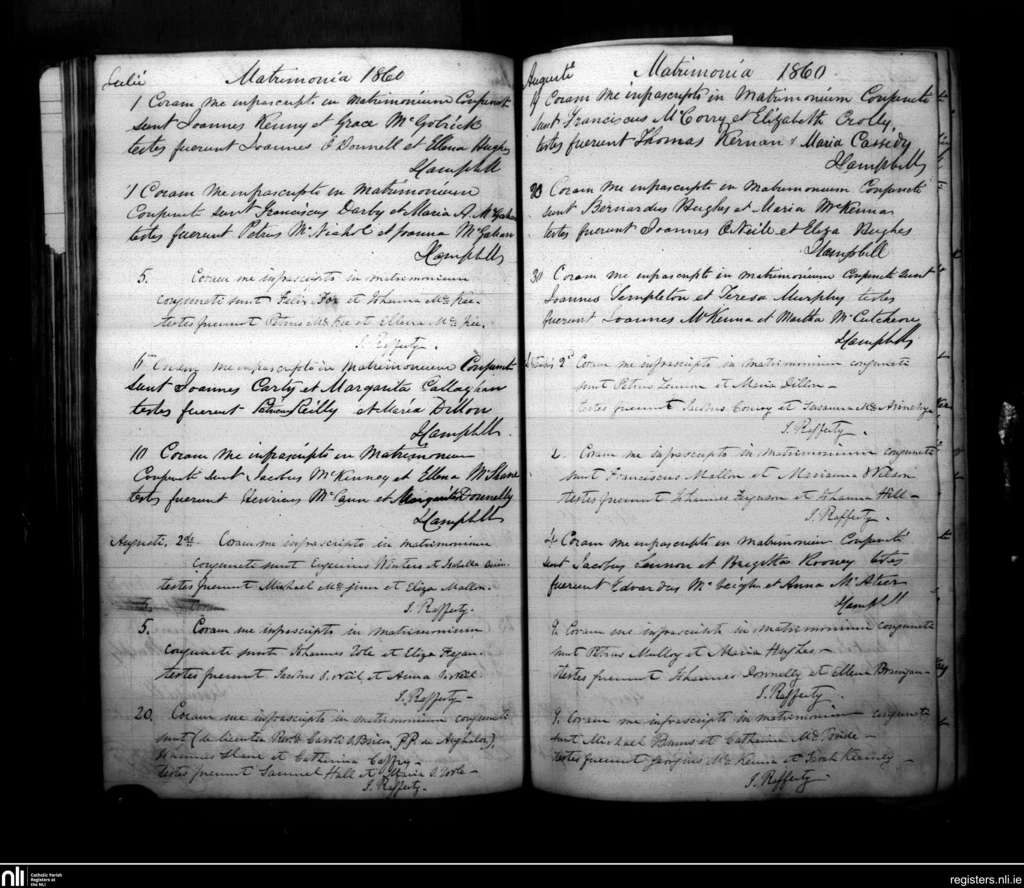 Julii Matrimonia 1860
1 Coram me infrascripto in Matrimonium Conjuncti
sunt Joannes Kenny et Grace McGolrick
testes fuerunt Joannes O'Donnell et Ellena Hughes
J Campbell
1 Coram Me infrascripto in Matrimonium
Conjuncti sunt Franciscus Darby et Maria A.
testes fuerunt Petrus McNichol et Joanna
J Campbell
5. Coram me infrascripto in matrimonium
conjuncti sunt Felix Fox et Johanna McKee.
testes fuerunt Petrus McKee et Ellena McKee.
J. Rafferty.
Coram me infrascripto in Matrimonium Conjuncti
sunt Joannes Carty et Margarita Callaghan
testes fuerunt Reilly et Maria Dillon
J Campbell
10 Coram Me infrascripto in Matrimonium
Conjuncti sunt Jacobus McKenney et Ellena McShane
testes fuerunt Henricus McCann et Margarita Donnelly
J Campbell
Augusti, 2do. Coram me infrascripto in matrimonium
conjuncti sunt Winters et Isabella
testes fuerunt Michael et Eliza Mallon.
J. Rafferty.
5. Coram
5. Coram me infrascripto in matrimonium
conjuncti sunt Johannes et Eliza Fegan.
testes fuerunt Jacobus O'Neill et Anna O'Neill.
J. Rafferty
20. Coram me infrascripto in matrimonium conjuncti
sunt (de licentia Revd. Caroli O'Brien, P.P. de Aghaloo),
Johannes Shane et Catherina Caffry
testes fuerunt Samuel Hall et Maria
J. Rafferty.
Augusti Matrimonia 1860
Coram Me infrascripto in Matrimonium Conjuncti
sunt Franciscus McCorry et Elizabeth Crolly,
testes fuerunt Thomas Kernan & Maria Cassidy
J Campbell
20 Coram Me infrascripto in Matrimonium Conjuncti
sunt Bernardus Hughes et Maria McKenna
testes fuerunt Joannes O'Neile et Eliza Hughes
J Campbell
30 Coram Me infrascripto in matrimonium Conjuncti sunt
Joannes Templeton et Teresa Murphy testes
fuerunt Joannes McKenna et Martha McCutcheon
J Campbell
2d Coram me infrascripto in matrimonium conjuncti
sunt Petrus Lennon et Maria Dillon
testes fuerunt Conroy et Susanna
J. Rafferty.
2. Coram me infrascripto in matrimonium conjuncti
sunt Franciscus Mallon et Marianna Wilson
testes fuerunt Johannes Ferguson et Johanna Hill
J. Rafferty.
4 Coram me infrascripto in matrimonium Conjuncti
sunt Jacobus Lennon et Brigitta Rooney testes
fuerunt Edvardus et Anna McAteer
J Campbell
9. Coram me infrascripto in matrimonium conjuncti
sunt Petrus Mulloy et Maria Hughes
testes fuerunt Johannes Donnelly et Ellena Branigan
J. Rafferty.
9. Coram me infrascripto in matrimonium conjuncti
sunt Michael Burns et Catherina
testes fuerunt McKenna et
J. Rafferty
nli Catholic Parish
Registers at
the NLI
registers.nli.ie